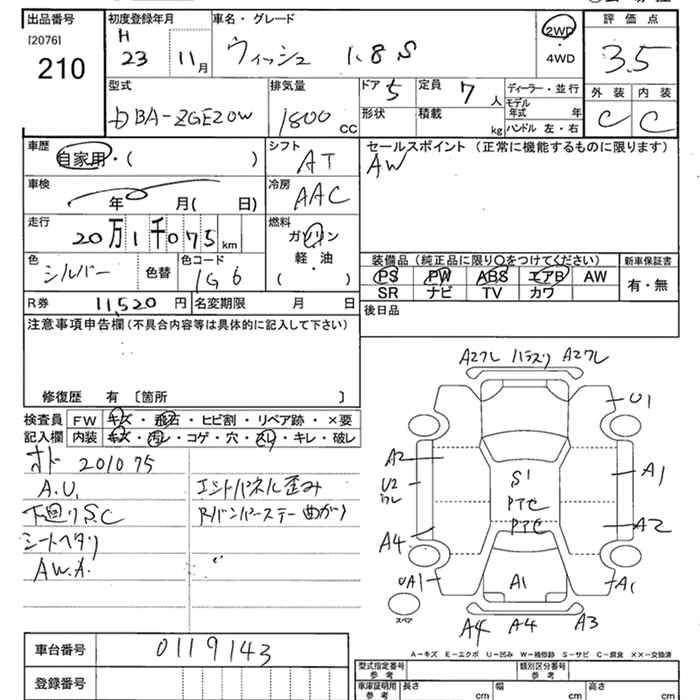 出品番号 初度登録年月 車名・グレード 評価点
[2076] H 2WD
210 23 11月 ウィッシュ 1.8 S ・ 3.5
4WD
型式 排気量 ドア 5 定員 7 人 ディーラー・並行 外装 内装
DBA-ZGE20W 1800 cc 形状 積載 kg モデル年式 年 C C
ハンドル 左・右
車歴 シフト セールスポイント (正常に機能するものに限ります)
自家用・( ) AT AW
車検 冷房
年 月( 日) AAC
走行 燃料
20万1千075km ガソリン
軽・油
色 色コード ・
シルバー 色替 1G6 ( )
装備品(純正品に限り○をつけてください) 新車保証書
PS PW ABS エアB AW 有・無
SR ナビ TV カワ
R券 11,520円 名変期限 月 日 後日品
注意事項申告欄(不具合内容等は具体的に記入して下さい)
修復歴 有 〔箇所 〕
検査員 FW キズ・飛石・ヒビ割・リペア跡・×要
記入欄 内装 キズ・汚レ・コゲ・穴・スレ・キレ・破レ
オド 201075
A.U. エンドパネル歪み
下回りS.C Rバンパーステー曲がり
シートヘタリ
AW.A.
A2ワレ ハラスリ A2ワレ
U1
A2 S1 A1
U2 ワレ Pアセ
Pアセ A2
A4
UA1 A1 A1
スペア
A4 A4 A3
A-キズ E-エクボ U-凹み W-補修跡 S-サビ C-腐食 ××-交換済
車台番号 0119143
登録番号
型式指定番号 参考 類別区分番号 参考
車庫証明用 参考 長さ cm 幅 cm 高さ cm